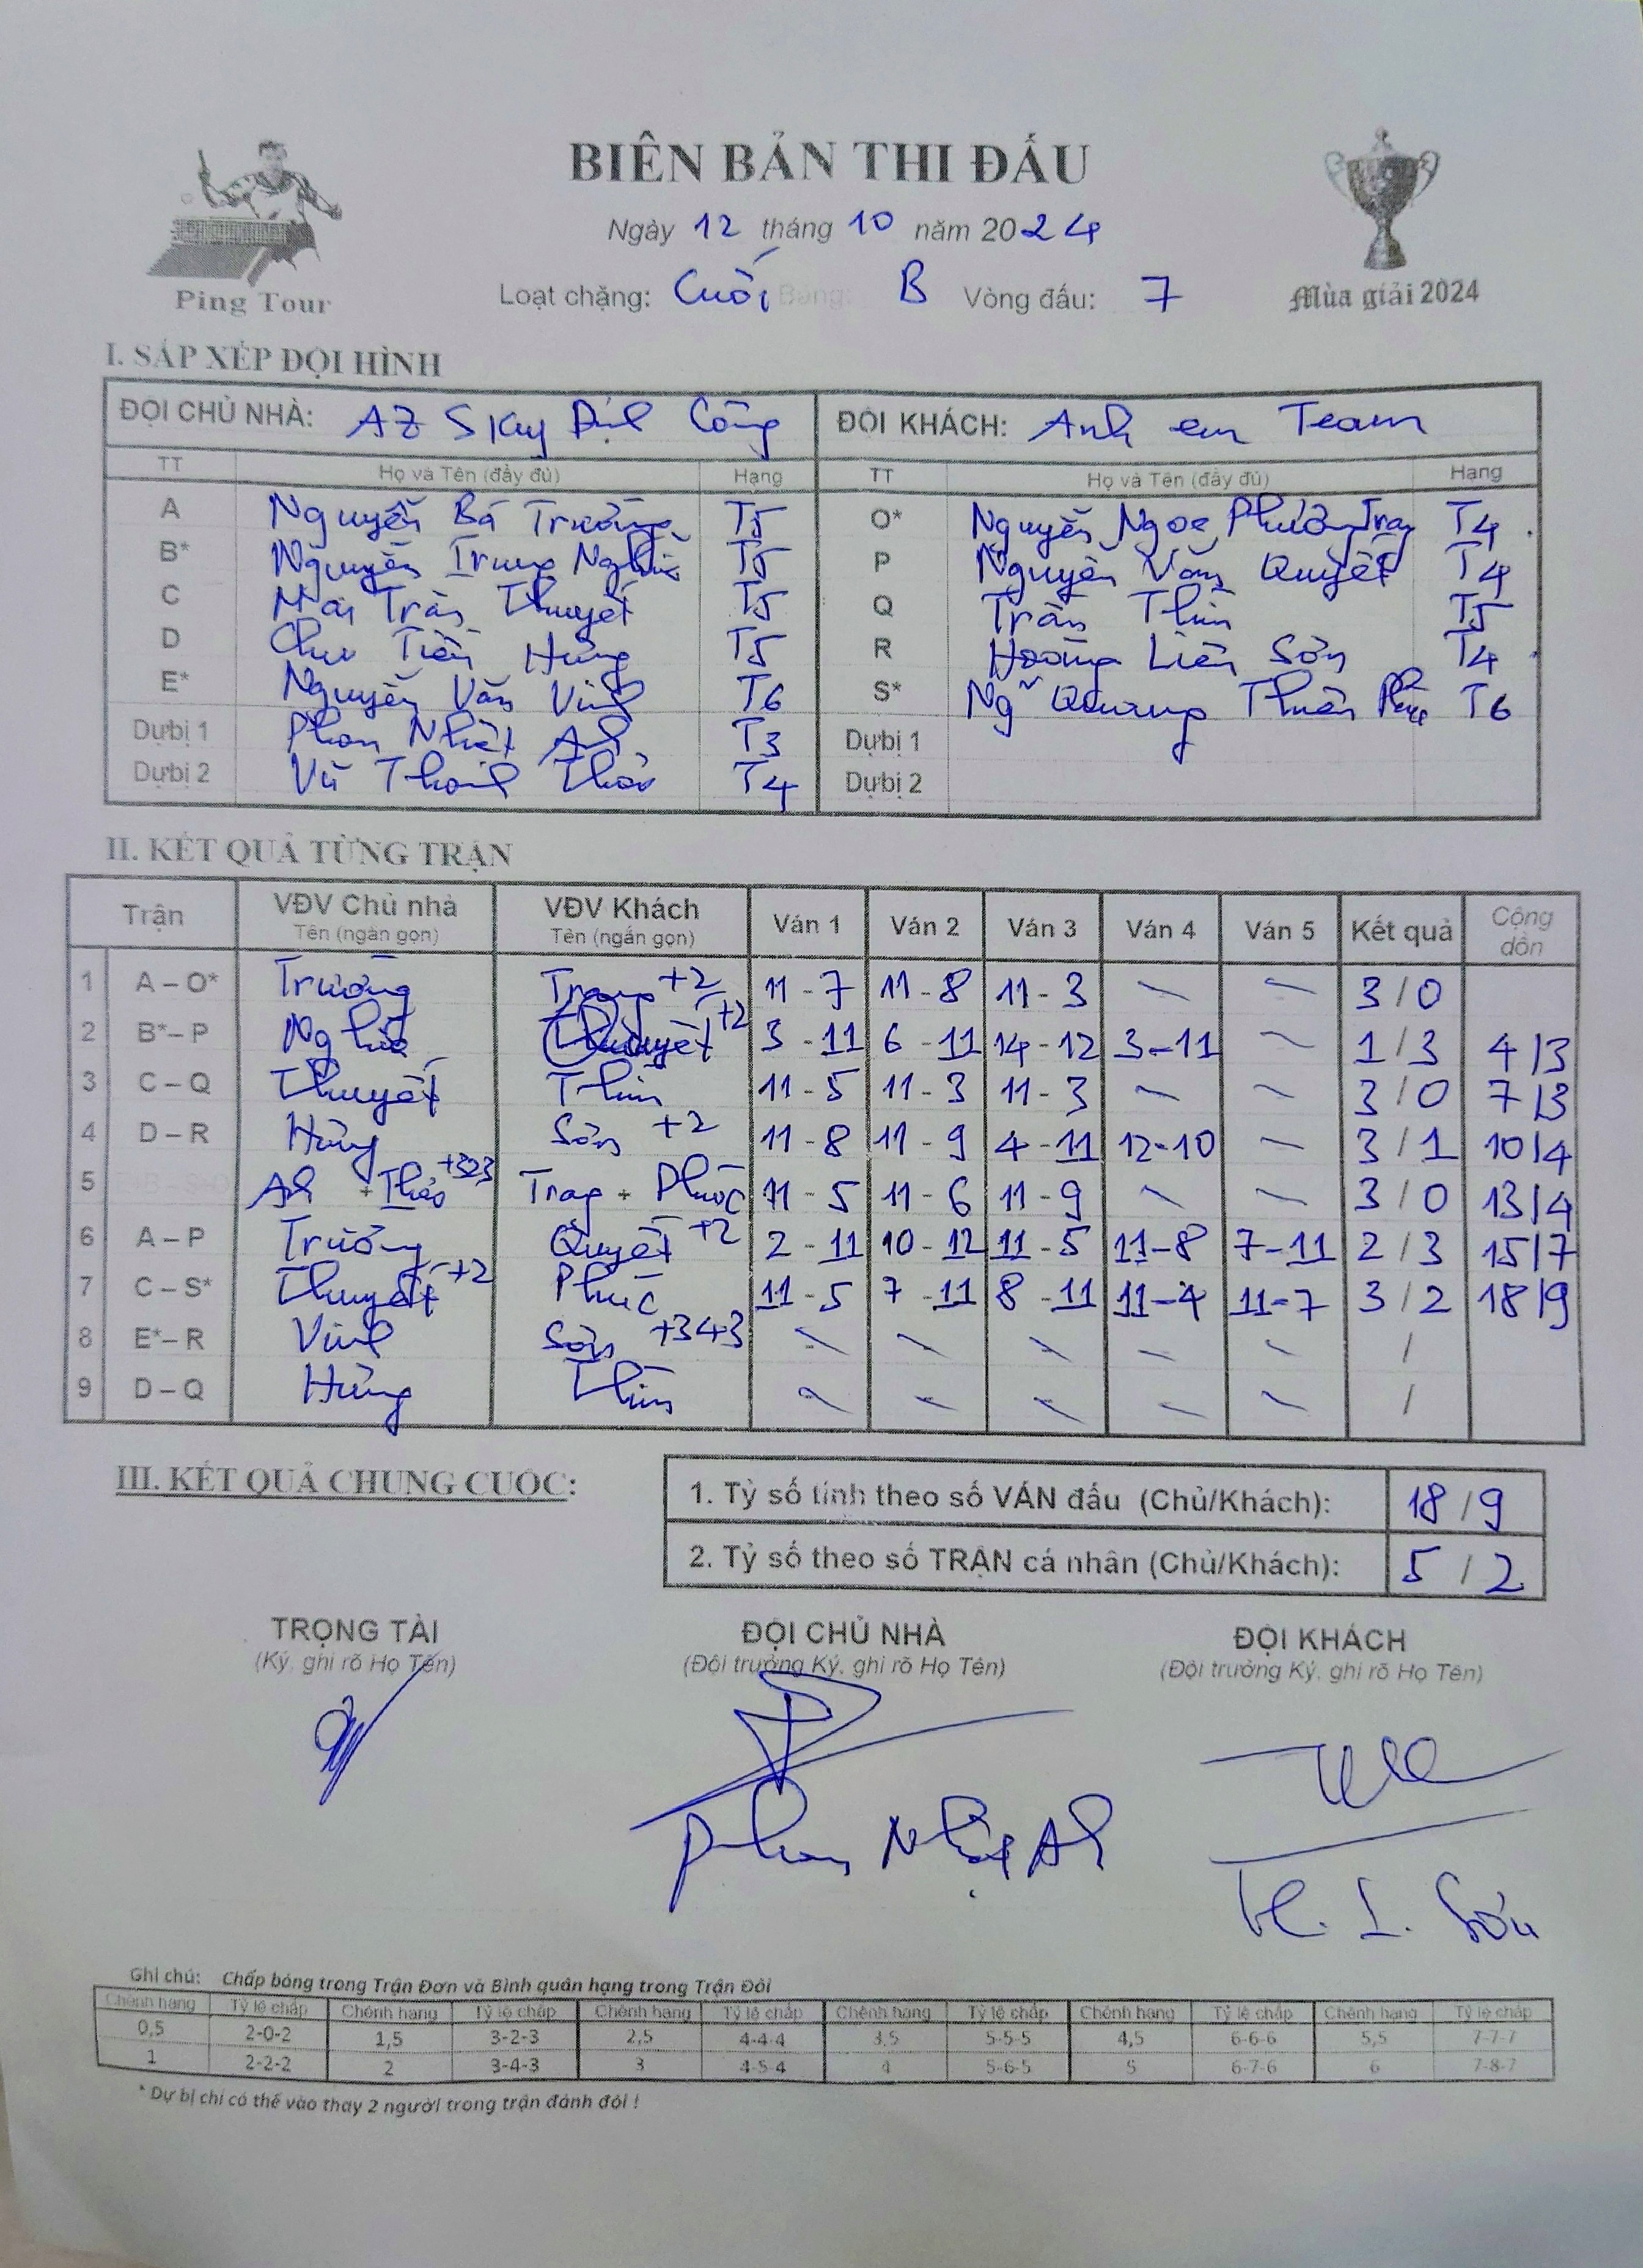 BIÊN BẢN THI ĐẤU
Ngày 12 tháng 10 năm 2024
Ping Tour
Loạt chặng: Cuối Bảng: B Vòng đấu: 7
Mùa giải 2024
I. SẮP XẾP ĐỘI HÌNH
ĐỘI CHỦ NHÀ: AZ SKy Định Công ĐỘI KHÁCH: Anh em Team
TT Họ và Tên (đầy đủ) Hạng TT Họ và Tên (đầy đủ) Hạng
A Nguyễn Bá Trường T5 O* Nguyễn Ngọc Phương Trang T4
B* Nguyễn Trung Nghĩa T5 P Nguyễn Văn Quyết T4
C Mai Trần Thuyết T5 Q Trần Thìn T5
D Chu Tiến Hùng T5 R Hoàng Liên Sơn T4
E* Nguyễn Văn Vinh T6 S* Ng~ Quang Thiên Phúc T6
Dự bị 1 Phan Nhật Anh T3 Dự bị 1
Dự bị 2 Vũ Thanh Thảo T4 Dự bị 2
II. KẾT QUẢ TỪNG TRẬN
Trận VĐV Chủ nhà VĐV Khách Ván 1 Ván 2 Ván 3 Ván 4 Ván 5 Kết quả Cộng dồn
Tên (ngắn gọn) Tên (ngắn gọn)
1 A – O* Trường Trang +2 11 - 7 11 - 8 11 - 3 \ \ 3 / 0
2 B* – P Nghĩa Quyết +2 3 - 11 6 - 11 14 - 12 3 - 11 \ 1 / 3 4/3
3 C – Q Thuyết Thìn 11 - 5 11 - 3 11 - 3 \ \ 3 / 0 7/3
4 D – R Hùng Sơn +2 11 - 8 11 - 9 4 - 11 12 - 10 \ 3 / 1 10/4
5 Anh + Thảo +323 Trang + Phúc 11 - 5 11 - 6 11 - 9 \ \ 3 / 0 13/4
6 A – P Trường Quyết +2 2 - 11 10 - 12 11 - 5 11 - 8 7 - 11 2 / 3 15/7
7 C – S* Thuyết +2 Phúc 11 - 5 7 - 11 8 - 11 11 - 4 11 - 7 3 / 2 18/9
8 E* – R Vinh Sơn +343 \ \ \ \ \ /
9 D – Q Hùng Thìn \ \ \ \ \ /
III. KẾT QUẢ CHUNG CUỘC:
1. Tỷ số tính theo số VÁN đấu (Chủ/Khách): 18 / 9
2. Tỷ số theo số TRẬN cá nhân (Chủ/Khách): 5 / 2
TRỌNG TÀI ĐỘI CHỦ NHÀ ĐỘI KHÁCH
(Ký, ghi rõ Họ Tên) (Đội trưởng Ký, ghi rõ Họ Tên) (Đội trưởng Ký, ghi rõ Họ Tên)
Phan Nhật Anh
H. L. Sơn
Ghi chú: Chấp bóng trong Trận Đơn và Bình quân hạng trong Trận Đôi
Chênh hạng Tỷ lệ chấp Chênh hạng Tỷ lệ chấp Chênh hạng Tỷ lệ chấp Chênh hạng Tỷ lệ chấp Chênh hạng Tỷ lệ chấp Chênh hạng Tỷ lệ chấp
0,5 2-0-2 1,5 3-2-3 2,5 4-4-4 3,5 5-5-5 4,5 6-6-6 5,5 7-7-7
1 2-2-2 2 3-4-3 3 4-5-4 4 5-6-5 5 6-7-6 6 7-8-7
* Dự bị chỉ có thể vào thay 2 người trong trận đánh đôi !